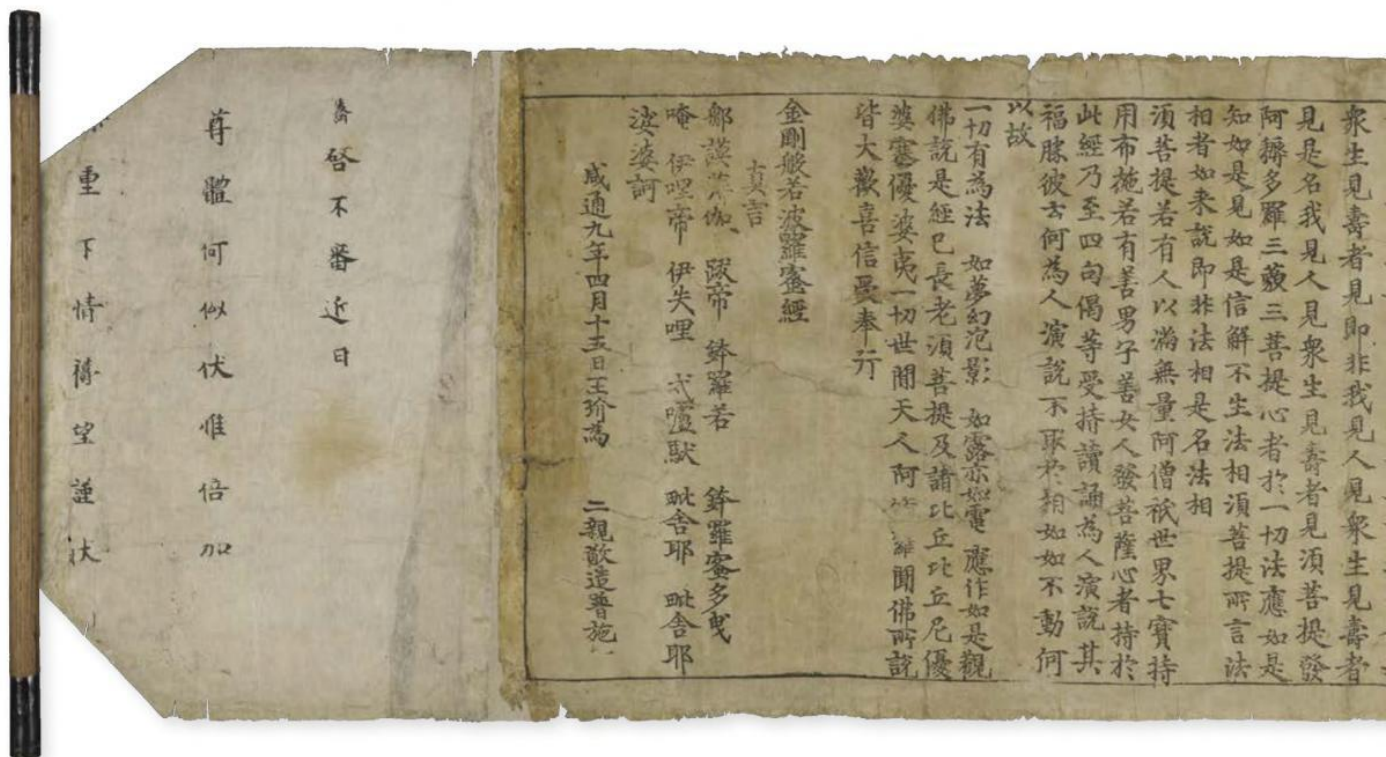 衆生見壽者見即非我見人見衆生見壽者
見是名我見人見衆生見壽者見須菩提發
阿耨多羅三藐三菩提心者於一切法應如是
知如是見如是信解不生法相須菩提所言法
相者如来說即非法相是名法相
須菩提若有人以滿無量阿僧祇世界七寶持
用布施若有善男子善女人發菩薩心者持於
此經乃至四句偈等受持讀誦為人演說其
福勝彼云何為人演說不取於相如如不動何
以故
一切有為法 如夢幻泡影 如露亦如電 應作如是觀
佛說是經已長老須菩提及諸比丘比丘尼優
婆塞優婆夷一切世間天人阿羅聞佛所說
皆大歡喜信受奉行
金剛般若波羅蜜經
真言
那謨薄伽跋帝 鉢羅若 鉢羅蜜多曳
唵 伊哩帝 伊失哩 戍嚧馱 毗舍耶 毗舍耶
娑婆訶
咸通九年四月十五日王玠為 二親敬造普施
啓不審近日
尊體何似伏惟倍加
重下情禱望謹狀